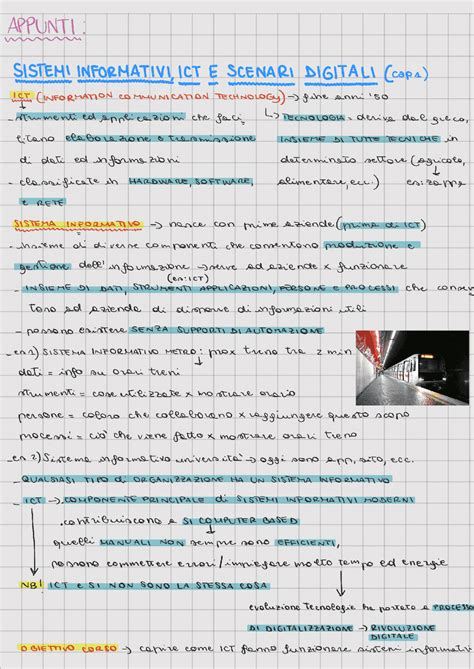 APPUNTI:
SISTEMI INFORMATIVI, ICT E SCENARI DIGITALI (cap 1)
ICT (INFORMATION COMMUNICATION TECHNOLOGY) → fine anni '50
- strumenti ed applicazioni che faci
litano elaborazione e trasmissione
di dati ed informazioni
- classificate in HARDWARE, SOFTWARE,
e RETE
↳ TECNOLOGIA = deriva dal greco,
INSIEME DI TUTTE TECNICHE in
determinato settore (agricolo,
alimentare, ecc.)
SISTEMA INFORMATIVO → nasce con prime aziende (prima di ICT)
- insieme di diverse componenti che consentono produzione e
gestione dell' informazione → serve ad aziende x funzionare
(es: ICT)
- INSIEME DI DATI, STRUMENTI APPLICAZIONI, PERSONE E PROCESSI che consen
tono ad aziende di disporre di informazioni utili
- possono esistere SENZA SUPPORTI DI AUTOMAZIONE
- es 1) SISTEMA INFORMATIVO METRO: prox treno tra 2 min
dati = info su orari treni
strumenti = cose utilizzate x mostrare orario
persone = coloro che collaborano x raggiungere questo scopo
processi = ciò che viene fatto x mostrare orari treno
- es 2) Sistema informativo università → oggi sono app, sito, ecc.
- QUALSIASI TIPO di ORGANIZZAZIONE HA UN SISTEMA INFORMATIVO
- ICT → COMPONENTE PRINCIPALE di SISTEMI INFORMATIVI MODERNI
. contribuiscono a SI COMPUTER BASED
quelli MANUALI NON sempre sono EFFICIENTI,
possono commettere errori / impiegare molto tempo ed energie
NB! ICT e SI NON SONO LA STESSA COSA
evoluzione Tecnologie ha portato a PROCESSO
DI DIGITALIZZAZIONE → RIVOLUZIONE
DIGITALE
OBIETTIVO CORSO → capire come ICT fanno funzionare sistemi informativi